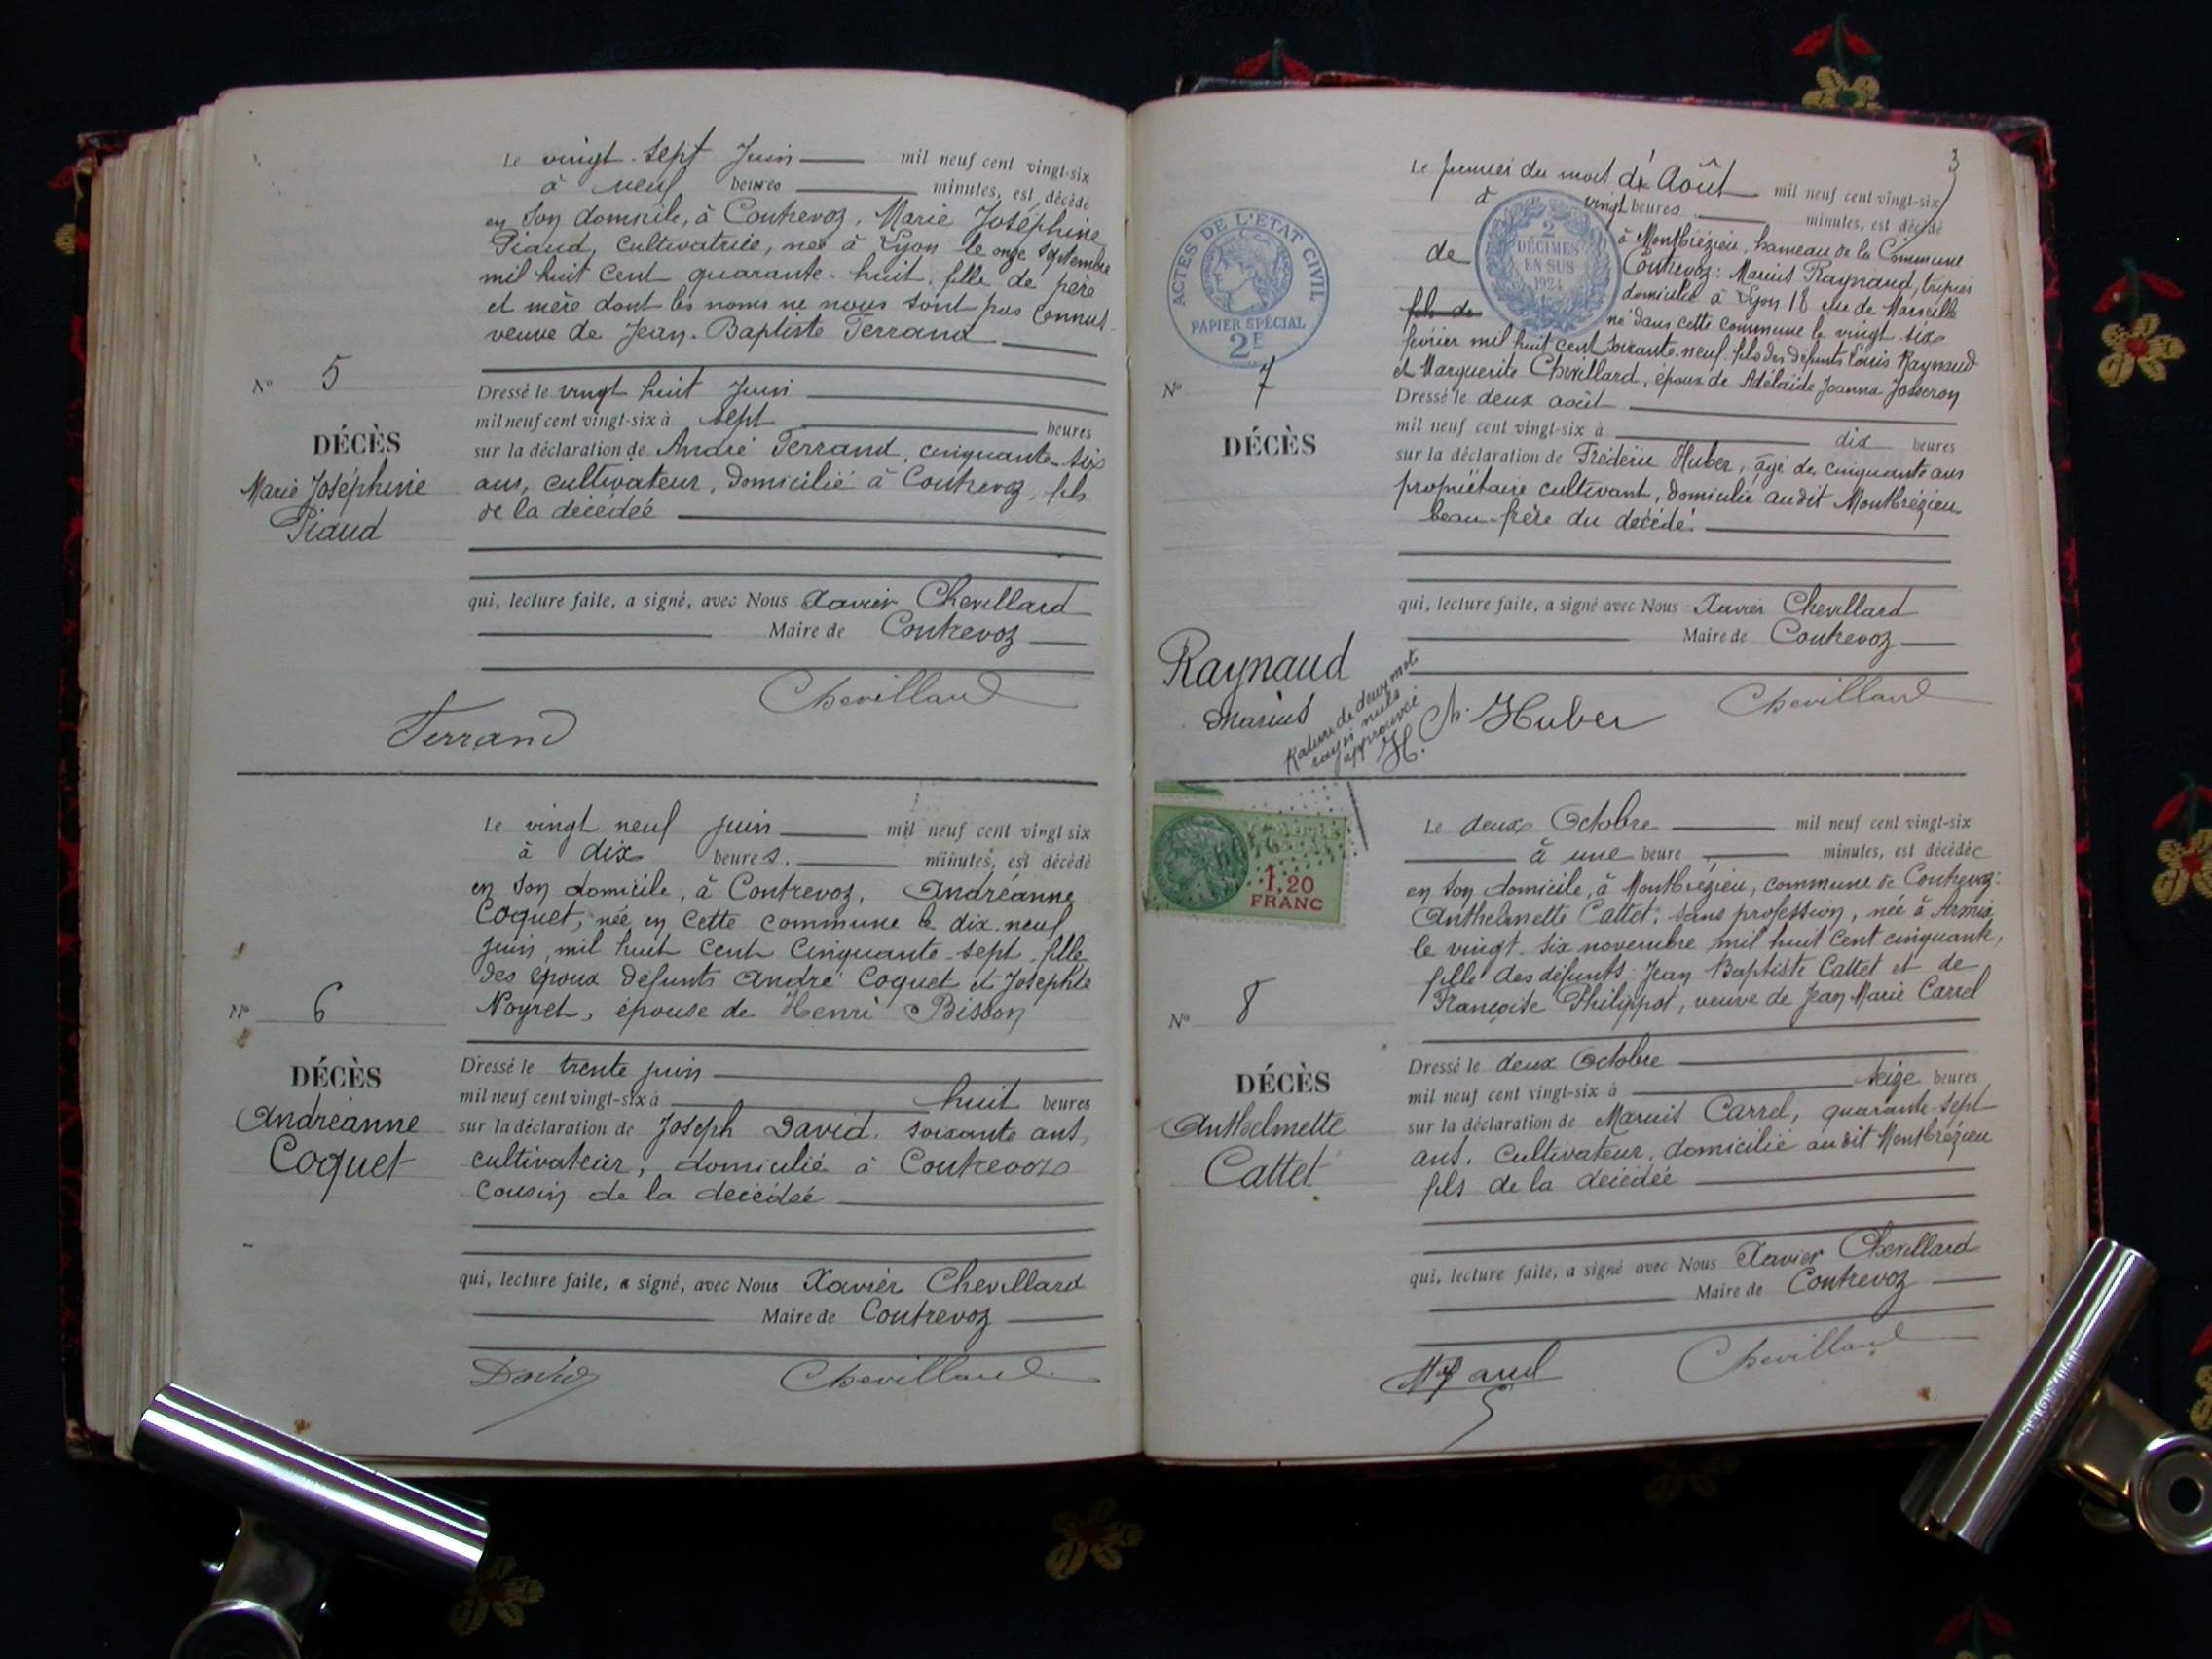 Le vingt-sept Juin mil neuf cent vingt-six
à neuf heures minutes, est décédé
en son domicile, à Contrevoz, Marie Joséphine
Piaud, cultivatrice, née à Lyon le onze septembre
mil huit cent quarante-huit, fille de père
et mère dont les noms ne nous sont pas connus
veuve de Jean-Baptiste Ferrand
N° 5
DÉCÈS
Marie Joséphine
Piaud
Dressé le vingt huit Juin
mil neuf cent vingt-six à sept heures
sur la déclaration de André Ferrand, cinquante-six
ans, cultivateur, domicilié à Contrevoz, fils
de la décédée
qui, lecture faite, a signé, avec Nous Xavier Chevillard
Maire de Contrevoz
Chevillard
Ferrand
Le vingt neuf juin mil neuf cent vingt six
à dix heures, minutes, est décédé
en son domicile, à Contrevoz, Andréanne
Coquet, née en cette commune le dix-neuf
juin, mil huit cent cinquante-sept, fille
des époux défunts André Coquet et Josephte
Noyret, épouse de Henri Bisson
N° 6
DÉCÈS
Andréanne
Coquet
Dressé le trente juin
mil neuf cent vingt-six à huit heures
sur la déclaration de Joseph David, soixante ans,
cultivateur, domicilié à Contrevoz
cousin de la décédée
qui, lecture faite, a signé, avec Nous Xavier Chevillard
Maire de Contrevoz
David Chevillard
3
Le premier du mois d'Août mil neuf cent vingt-six
à vingt heures minutes, est décédé
à Montbrézieu, hameau de la Commune
de Contrevoz: Marius Raynaud, tripier
domicilié à Lyon 18 rue de Marseille
fils de né dans cette commune le vingt six
février mil huit cent soixante-neuf fils des défunts Louis Raynaud
et Marguerite Chevillard, époux de Adélaïde Joanna Josseron
ACTES DE L'ÉTAT CIVIL
PAPIER SPÉCIAL
2F
2
DÉCIMES
EN SUS
1924
N° 7
DÉCÈS
Raynaud
Marius
Dressé le deux août
mil neuf cent vingt-six à dix heures
sur la déclaration de Fréderic Huber, âgé de cinquante ans
propriétaire cultivant, domicilié audit Montbrézieu
beau-frère du décédé.
qui, lecture faite, a signé avec Nous Xavier Chevillard
Maire de Contrevoz
Rature de deux mots
rayés nuls
approuvée
H.
Huber Chevillard
1,20
FRANC
Le deux Octobre mil neuf cent vingt-six
à une heure minutes, est décédée
en son domicile, à Montbrézieu, commune de Contrevoz:
Anthelmette Cattet, sans profession, née à Armix
le vingt-six novembre mil huit cent cinquante,
fille des défunts Jean Baptiste Cattet et de
Françoise Philippot, veuve de Jean Marie Carrel
N° 8
DÉCÈS
Anthelmette
Cattet
Dressé le deux Octobre
mil neuf cent vingt-six à seize heures
sur la déclaration de Marius Carrel, quarante-sept
ans, cultivateur, domicilié audit Montbrézieu
fils de la décédée
qui, lecture faite, a signé avec Nous Xavier Chevillard
Maire de Contrevoz
Chevillard